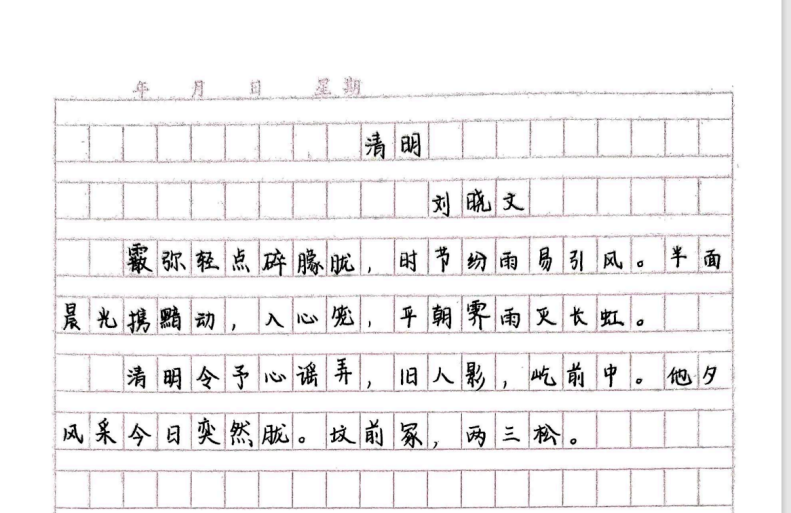 年 月 日 星期
清明
刘晓文
霰弥轻点碎朦胧，时节纷雨易引风。半面
晨光携黯动，入心笼，平朝霁雨灭长虹。
清明令予心谣弄，旧人影，屹前中。他夕
风采今日奕然胧。坟前冢，两三松。